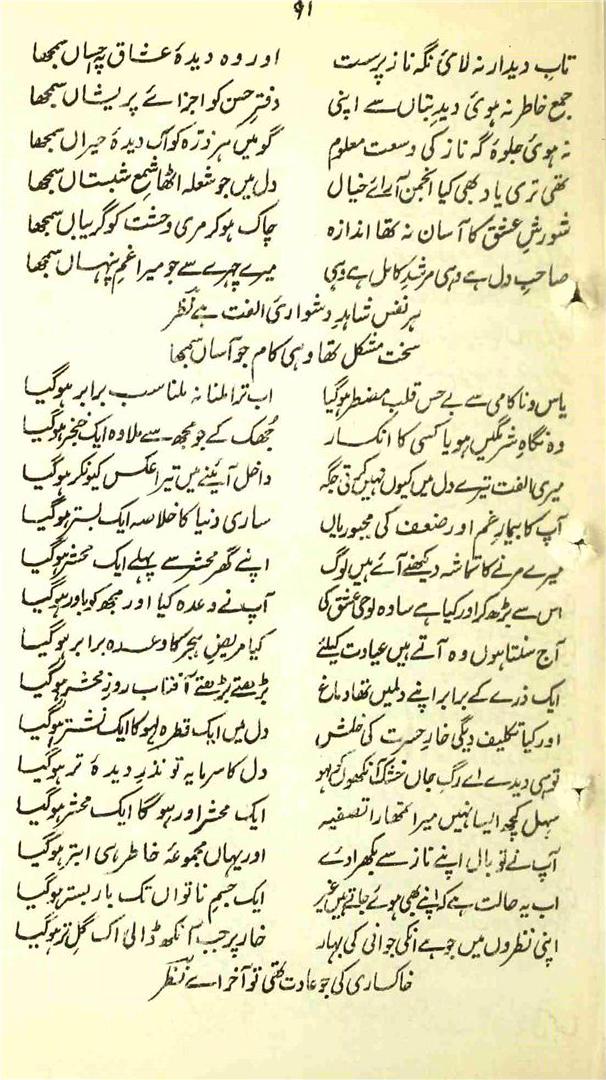 ۹۱
تاب دیدار نہ لائی نگہ ناز پرست اور وہ دیدۂ عشاق پہ چسپاں سمجھا
جمع خاطر نہ ہوئی دید بتاں سے اپنی دفتر حسن کو اجزائے پریشاں سمجھا
نہ ہوئی جلوہ گہ ناز کی وسعت معلوم گو میں ہر ذرہ کو اک دیدۂ حیراں سمجھا
تھی تری یاد بھی کیا انجمن آرائے خیال دل میں جو شعلہ اٹھا شمع شبستاں سمجھا
شورش عشق کا آساں نہ تھا اندازہ چاک ہو کر مری وحشت کو گریباں سمجھا
صاحب دل ہے وہی مرشد کامل ہے وہی میرے چہرے سے جو میرا غم پنہاں سمجھا
ہر نفس شاہد دشواریٔ الفت ہے نظر
سخت مشکل تھا وہی کام جو آساں سمجھا
یاس و ناکامی سے بے حس قلب مضطر ہوگیا اب ترا ملنا نہ ملنا سب برابر ہوگیا
وہ نگاہ شرمگیں ہو یا کسی کا انکسار جھک کے جو مجھ سے ملا وہ ایک خنجر ہوگیا
میری الفت تیرے دل میں کیوں نہیں کرتی جگہ داخل آئینے میں تیرا عکس کیونکر ہوگیا
آپ کا بیمار غم اور ضعف کی مجبوریاں ساری دنیا کا خلاصہ ایک بستر ہوگیا
میرے مرنے کا تماشہ دیکھنے آئے ہیں لوگ اپنے گھر محشر سے پہلے ایک محشر ہوگیا
اس سے بڑھ کر اور کیا ہے سادہ لوحی عشق کی آپ نے وعدہ کیا اور مجھ کو باور ہوگیا
آج سنتا ہوں وہ آتے ہیں عیادت کیلئے کیا مریض ہجر کا وعدہ برابر ہوگیا
ایک ذرے کے برابر اپنے دلمیں تھا داغ بڑھتے بڑھتے آفتاب روز محشر ہوگیا
اور کیا تکلیف دیگی خار حسرت کی خلش دل میں ایک قطرہ لہو کا ایک نشتر ہوگیا
تو ہی دیدے اے رگ جاں خشک آنکھوں کو لہو دل کا سرمایہ تو نذر دیدۂ تر ہوگیا
سہل کچھ ایسا نہیں میرا تمھارا تصفیہ ایک محشر اور ہوگا ایک محشر ہوگیا
آپ نے تو بال اپنے ناز سے بکھرا دئے اور یہاں مجموعۂ خاطر ہی ابتر ہوگیا
اب یہ حالت ہے کہ اپنے بھی ہوئے جاتے ہیں غیر ایک جسم ناتواں تک بار بستر ہوگیا
اپنی نظروں میں جو ہے انکی جوانی کی بہار خار پر جب آنکھ ڈالی اک گل تر ہوگیا
خاکساری کی جو عادت تھی تو آخر اے نظر